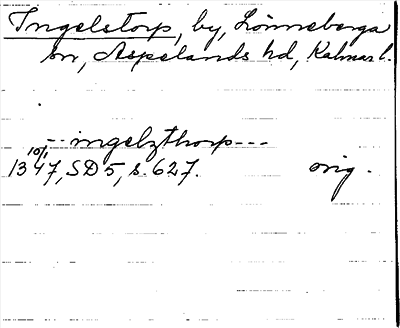 Ingelstorp, by, Lönneberga
sn, Aspelands hd, Kalmar l.
-- ingelzthorp ---
10/1
1347, SD 5, s. 627. orig.